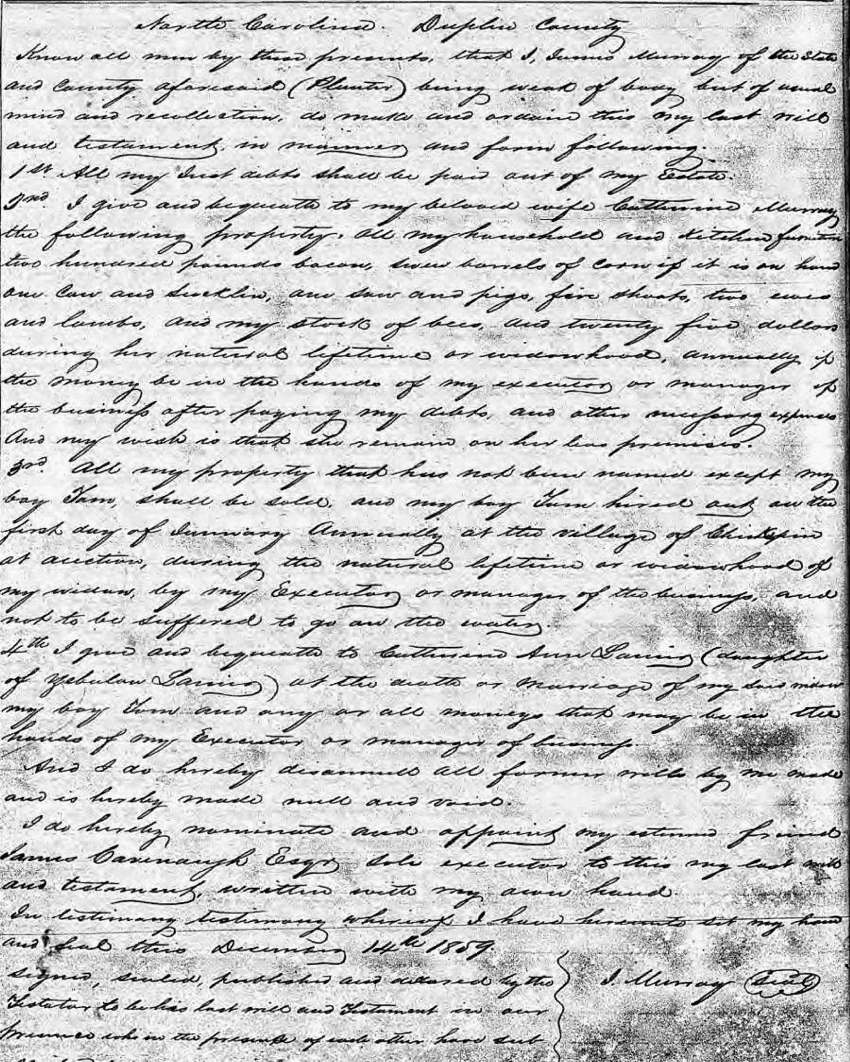 North Carolina. Duplin County
Know all men by these presents, that I, James Murray of the State
and County aforesaid (Planter) being weak of body but of usual
mind and recollection, do make and ordain this my last will
and testament, in manner and form following.
1st All my Just debts shall be paid out of my Estate.
2nd. I give and bequeath to my beloved wife Catherine Murray
the following property. All my household and Kitchen furniture
two hundred pounds bacon, barrels of corn if it is on hand
one Cow and one sow and pigs, five shoats, two ewes
and lambs, and my stock of bees, And twenty five dollars
during her natural lifetime or widowhood, annually if
the money be in the hands of my executor or manager of
the business after paying my debts, and other necessary expenses
And my wish is that she remain on her premises.
3rd. All my property that has not been named except my
boy Tom, shall be sold, and my boy Tom hired out on the
first day of January Annually at the village of
at auction, during the natural lifetime or widowhood of
my widow, by my Executor or manager of the business, and
not to be suffered to go on the water.
4th I give and bequeath to Catherine Ann Lanier (daughter
of Lanier) at the death or marriage of my said widow
my boy Tom and any or all moneys that may be in the
hands of my Executor or manager of business.
And I do hereby disannull all former wills by me made
and is hereby made null and void.
I do hereby nominate and appoint my esteemed friend
James Cavenaugh Esqr sole executor to this my last will
and testament, written with my own hand.
In testimony testimony whereof I have hereunto set my hand
and seal this December 14th 1859.
signed, sealed, published and declared by the
Testator to be his last will and Testament in our
presence who in the presence of each other have sub
J. Murray (Seal)